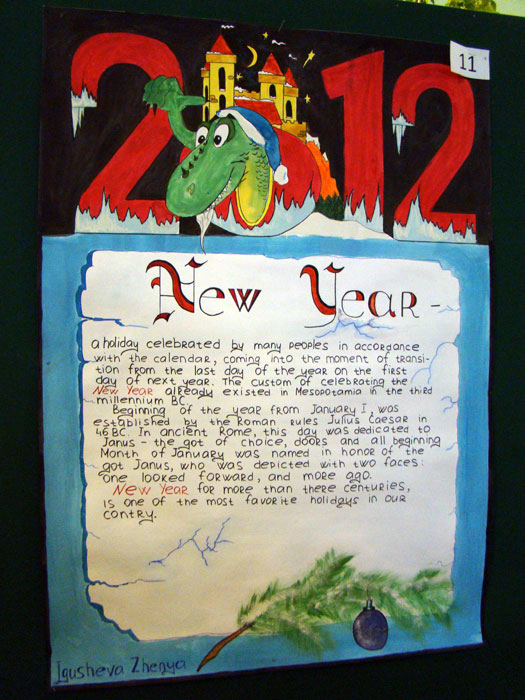 2012
11
New Year -
a holiday celebrated by many peoples in accordance
with the calendar, coming into the moment of transi-
tion from the last day of the year on the first
day of next year. The custom of celebrating the
New Year already existed in Mesopotamia in the third
millennium BC
Beginning of the year from January I, was
established by the Roman rules Julius Caesar in
46 BC. In ancient Rome, this day was dedicated to
Janus - the got of choice, doors and all beginning
Month of January was named in honor of the
got Janus, who was depicted with two faces:
one looked forward, and more ago.
New Year for more than there centuries,
is one of the most favorite holidays in our
contry.
Igusheva Zhenya